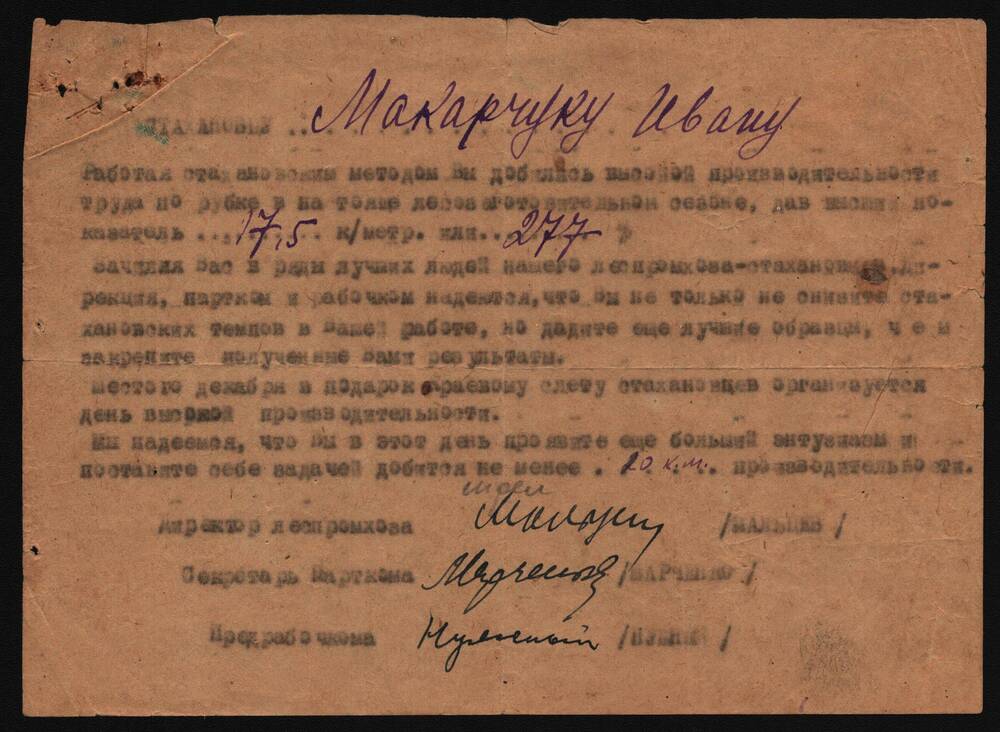 СТАХАНОВЦУ . . Макарчуку Ивану
Работая стахановским методом Вы добились высокой производительности
труда по рубке в на тоще лесозаготовительном сезоне, дав высший по-
казатель . . . 17,5 . . к/метр. или. . 277 . . %
Зачисляя Вас в ряды лучших людей нашего леспромхоза-стахановцев Ди-
рекция, партком и рабочком надеются, что Вы не только не снизите ста-
хановских темпов в Вашей работе, но дадите еще лучшие образцы, ч е м
закрепите полученные Вами результаты.
Шестого декабря в подарок Краевому слету стахановцев организуется
день высокой производительности.
Мы надеемся, что Вы в этот день проявите еще больший энтузиазм и
поставите себе задачей добится не менее . 20 к.м. . производительности.
Директор леспромхоза /МАЛЬЦЕВ/
Секретарь Парткома Марченко /МАРЧЕНКО/
Предрабочкома Нужный /НУЖНЫЙ/